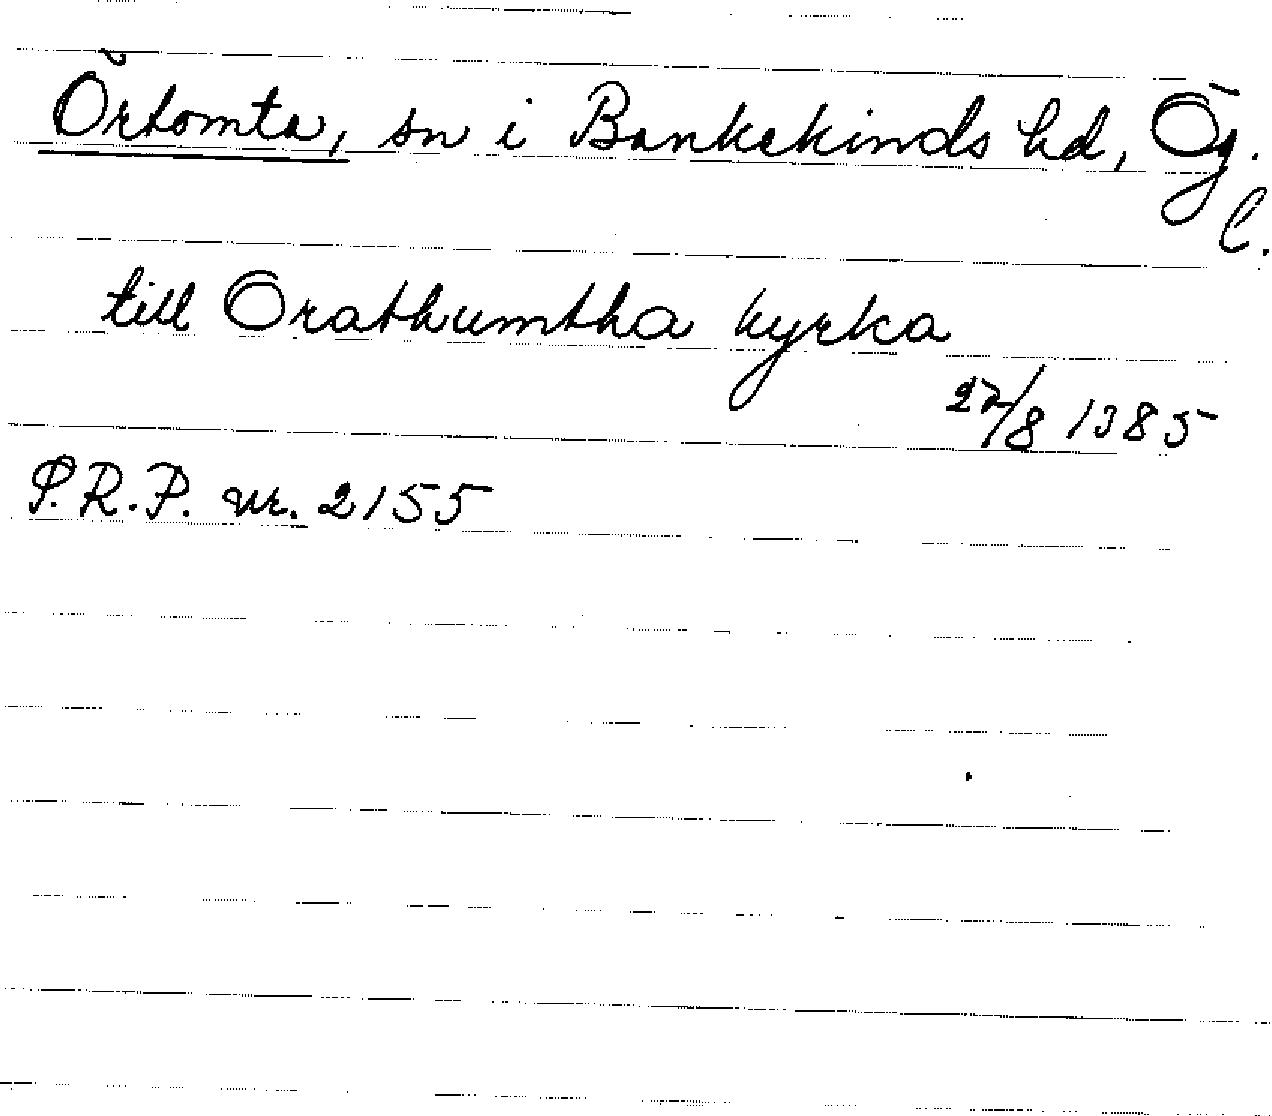 Örtomta, sn i Bankekinds hd, Ög.
l.
till Orathumtha kyrka
27/8 1385
S.R.P. nr. 2155